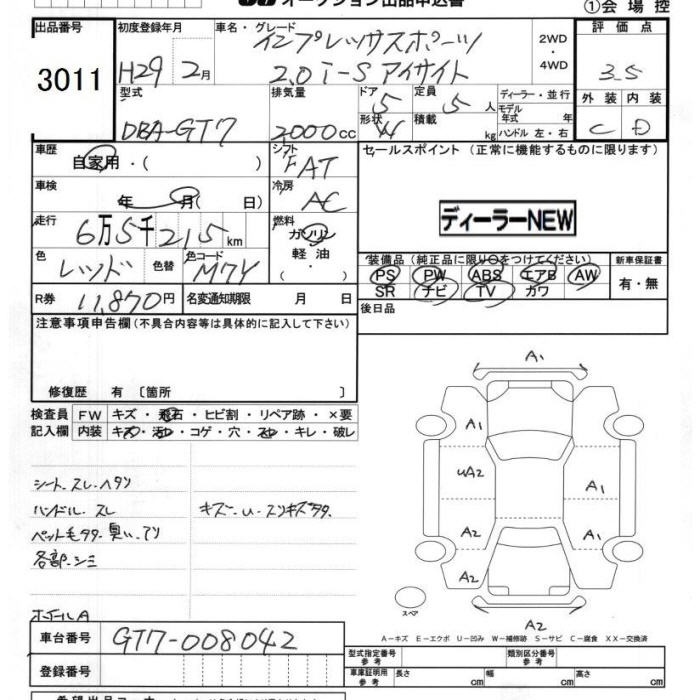 オークション出品申込書
①会場控
出品番号
3011
初度登録年月
H29 2月
車名・グレード
インプレッサスポーツ
2.0 i-S アイサイト
2WD
・
4WD
評価点
3.5
外装 内装
C D
型式
DBA-GT7
排気量
2000cc
ドア 5
定員 5人
形状 W
積載 kg
ディーラー・並行
モデル年式 年
ハンドル 左・右
車歴
自家用・( )
シフト
FAT
セールスポイント (正常に機能するものに限ります)
ディーラーNEW
車検
年 月( 日)
冷房
AC
走行
6万5千215km
燃料
ガソリン
軽油
・
色
レッド
色替
色コード
M7Y
装備品 (純正品に限り○をつけてください)
PS PW ABS エアB AW
SR ナビ TV カワ
新車保証書
有・無
R券 11,870円
名変通知期限 月 日
後日品
注意事項申告欄 (不具合内容等は具体的に記入して下さい)
修復歴 有 〔箇所 〕
検査員記入欄
FW キズ・飛石・ヒビ割・リペア跡・×要
内装 キズ・汚れ・コゲ・穴・スレ・キレ・破レ
シート.スレ.ヘタリ
ハンドル.スレ
キズ.U.スリキズ多々.
ペット毛多々.臭い.アリ
各部.シミ
ホイールA
A1
A1
UA2
A1
A2
A1
A2
A2
スペア
A-キズ E-エクボ U-凹み W-補修跡 S-サビ C-腐食 XX-交換済
車台番号 GT7-008042
登録番号
型式指定番号 参考
類別区分番号 参考
車庫証明用 参考
長さ cm
幅 cm
高さ cm